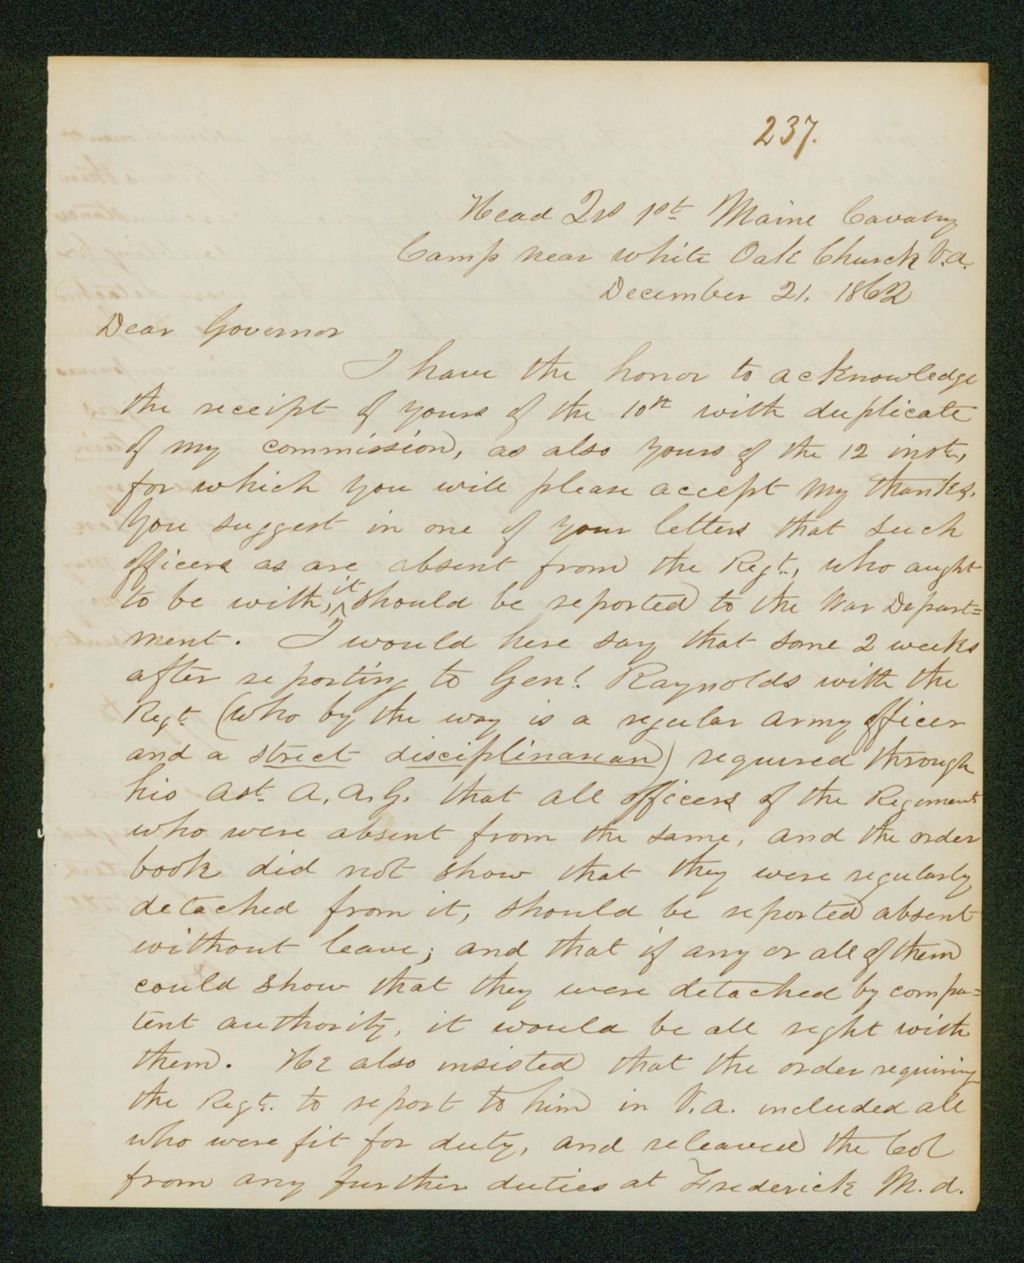 237.
Head Qrs 1st Maine Cavalry
Camp near White Oak Church V.a.
December 21, 1862
Dear Governor
I have the honor to acknowledge
the receipt of yours of the 10th with duplicate
of my commission, as also yours of the 12 inst,
for which you will please accept my thanks.
You suggest in one of your letters that such
officers as are absent from the Regt., who aught
to be with, it should be reported to the War Depart=
ment. I would here say that some 2 weeks
after reporting to Genl. Raynolds with the
Regt (who by the way is a regular army officer
and a strect disciplinarian) required through
his Ast. A.A.G. that all officers of the Regiment
who were absent from the same, and the order
book did not show that they were regularly
detached from it, should be reported absent
without leave; and that if any or all of them
could show that they were detached by compe=
tent authority, it would be all right with
them. He also insisted that the order requiring
the Regt. to report to him in V.a. included all
who were fit for duty, and releaved the Col
from any further duties at Frederick M.d.